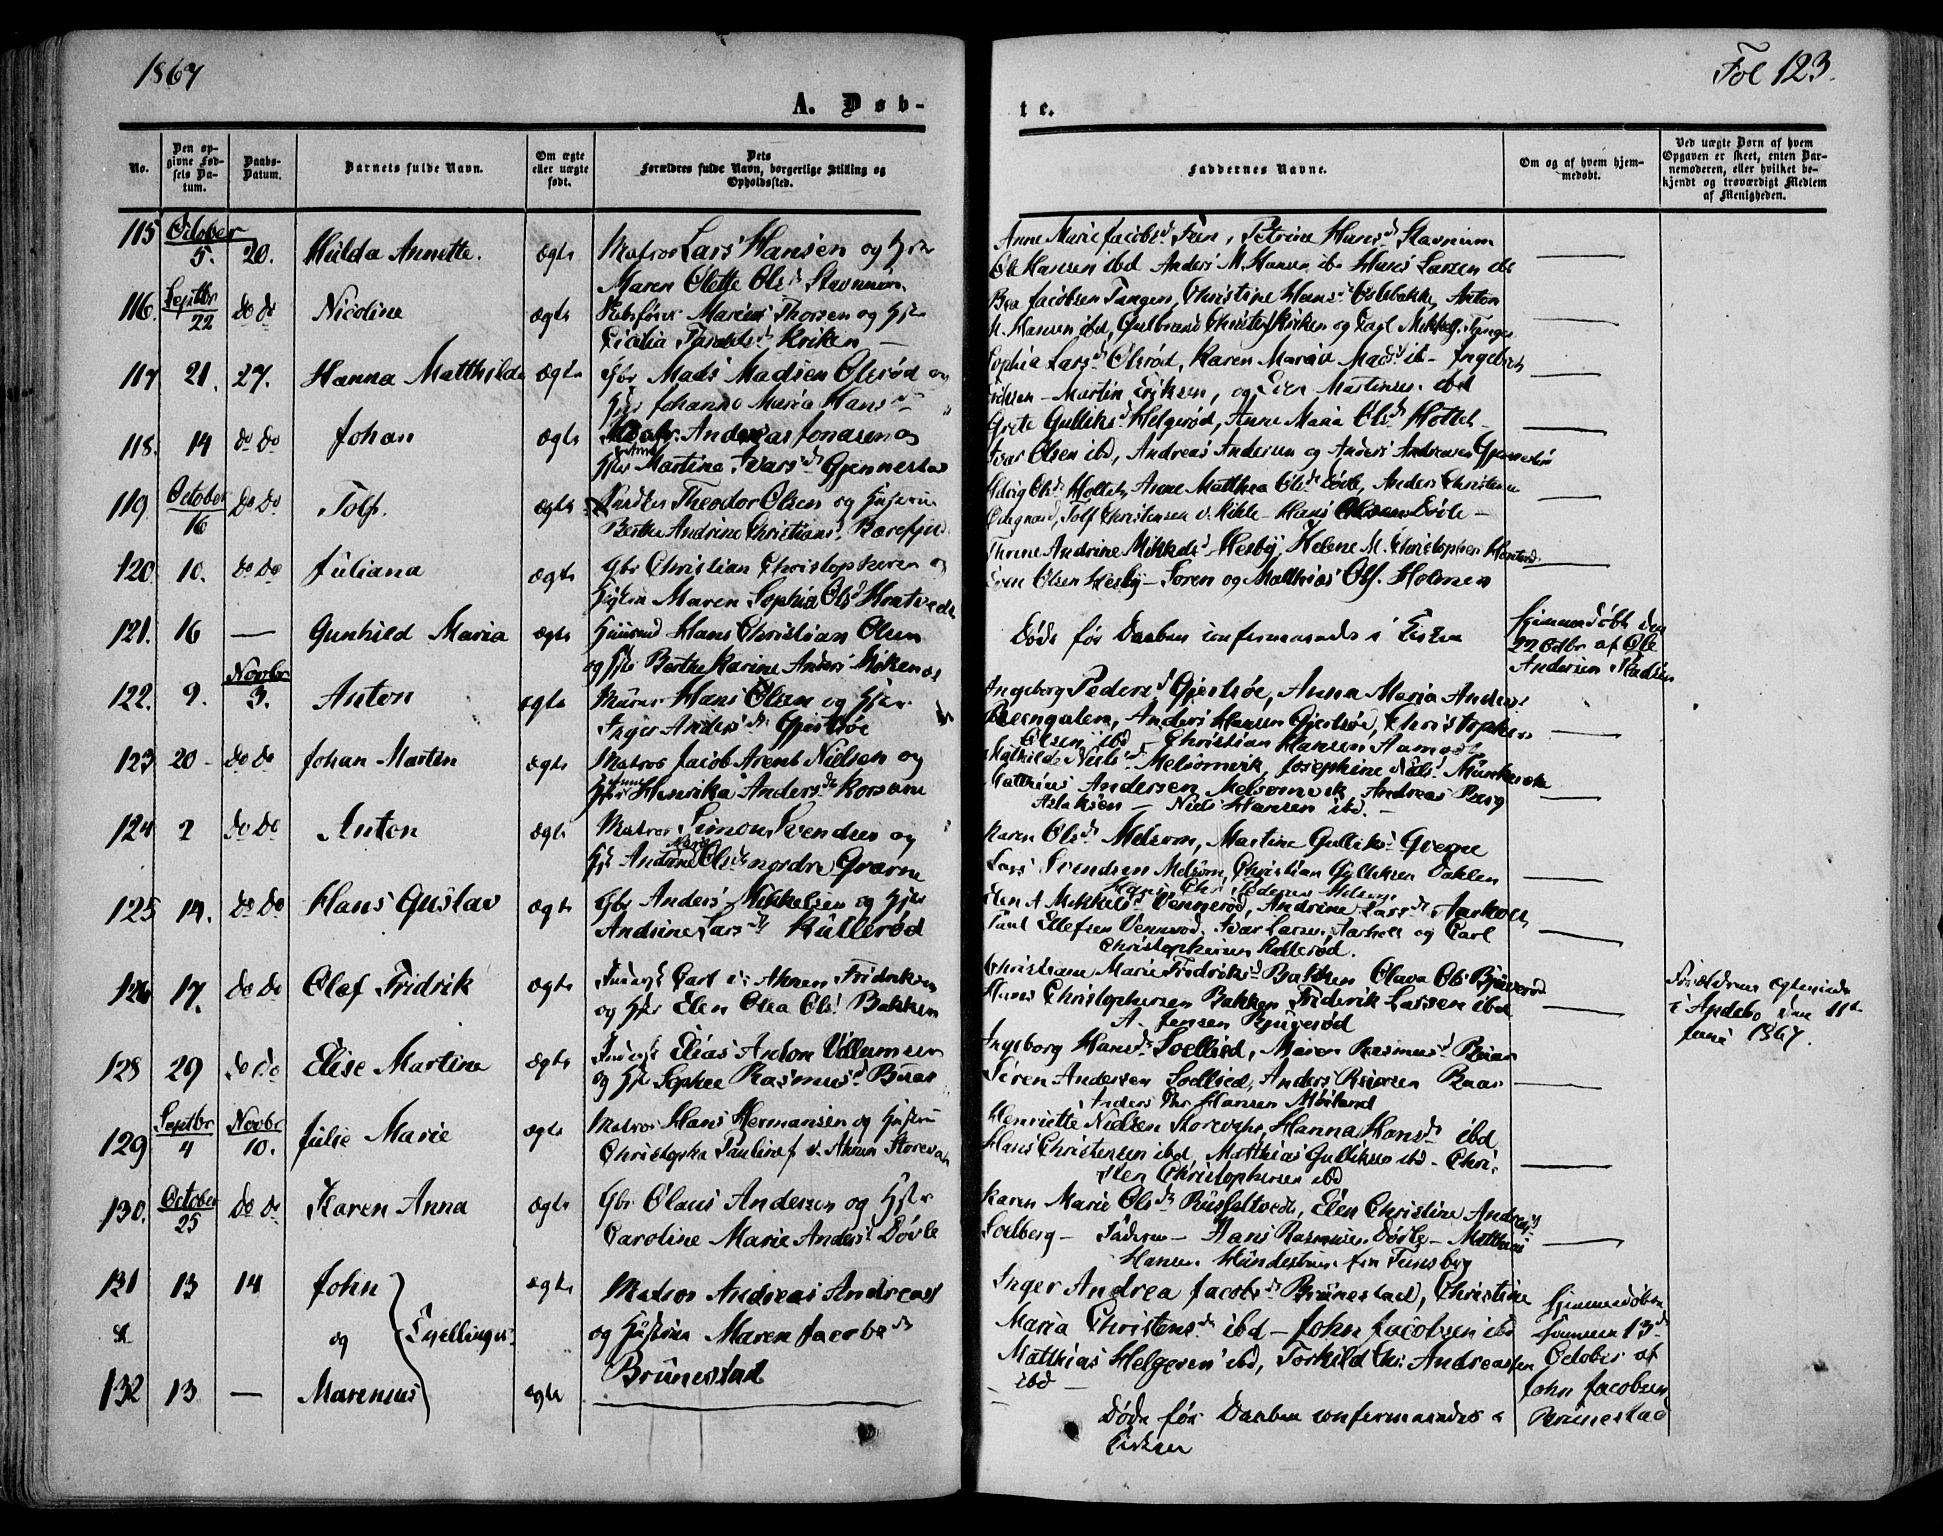 1867
Fol 123.
A. Døb-
te.
No.
Den op-
givne Fød-
sels Da-
tum.
Daabs-
Datum.
Barnets fulde Navn.
Om ægte
eller uægte
født.
Dets
Forældres fulde Navn, borgerlige Stilling og
Opholdssted.
Faddernes Navne.
Om og af hvem hjem-
medøbt.
Ved uægte Børn af hvem
Opgaven er skeet, enten Bar-
nemoderen, eller hvilket be-
kjendt og troværdigt Medlem
af Menigheden.
115 October
5. 20. Hulda Annette. ægte Matros Lars Hansen og Hstr
Maren Olette Olsd Stavnum
Anne Marie Jacobsd Fen, Petrine Hansd Stavnum
Ole Hansen ibd Anders M. Hansen ibd Hans Larsen ibd
116. Septbr
22 do do Nicoline ægte Marius Thorsen og Hstr
Kriken
Jacobsen Tangen, Christine Hansd Anton
M. Hansen ibd, Gulbrand Kriken og Carl
117 21. 27. Hanna Matthilde ægte Gbr Mads Madsen Olsrød og
Hstr Johanne Maria Hansd
Sophia Larsd Olsrød, Karen Maria Madsd ib- Ingebret
Martin Eriksen, og Iver Martinsen ibd
118. 14 do do Johan ægte Andreas Jonasen og
Hstr Martine Ivarsd Gjennestad
Grete Gulliksd Helgerød, Anne Maria Olsd Holtet
Ivar Olsen ibd, Andreas Andersen og Anders Andreasen Gjennestad
119 October
16 do do Tolf. ægte Theodor Olsen og Hustru
Berthe Andrine Christiansd
Olsd Holtet, Anne Matthea Olsd Døvle, Anders Christensen
Tolf Christensen v. Hans Olsen Døvle
120. 10. do do Juliana ægte Gbr Christian Christophersen og
Hustru Maren Sophia Olsd Hontvedt
Andrine Mikkelsd Hesby, Helene M. Christophersen
Even Olsen Hesby - Soren og Matthias Ols. Holmen
121. 16 — Gunhild Maria ægte Huusmd Hans Christian Olsen
og Hstr Berthe Karine Andersd
Døde før Daaben confermeredes i Kirken
Hjemmedøbt den
22 Octbr af Ole
Andersen
122. 9. Novbr
3. Anton ægte Murer Hans Olsen og Hstr
Inger Andersd Gjertsøe
Ingeborg Pedersd Gjertsøe, Anna Maria Andersd
Anders Hansen Gjertsøe, Christopher
Olsen ibd - Christian Hansen Aamodt
123 20 do do Johan Martin ægte Matros Jacob Arent Nielsen og
Hstr Henrika Andersd
Mathilde Nielsd Melsomvik, Josephine Nielsd
Matthias Andersen Melsomvik, Andreas
Aslaksen - Niels Hansen ibd.
124 2 do do Anton ægte Matros Simon Svendsen og
Hstr Andrine Marie Olsd nordre Gverne
Karen Olsd Melsom, Martine Gulliksd Gverne
Lars Svendsen Melsom, Christian Gulliksen Dahlen
Hans Chr. Pedersen Melsom
125 14. do do Hans Gustav ægte Gbr Anders Mikkelsen og Hstr
Andrine Larsd Rullerød
Elen A Mikkelsd Vennerød, Andrine Larsd Aarholt
Paul Ellefsen Vennerød, Ivar Larsen Aarholt og Carl
Christophersen Rullerød.
126 17. do do Olaf Fridrik ægte Carl v. Ahnen Fridriksen
og Hstr Elen Olea Olsd Bakken
Christiane Marie Fredriksd Bakken Olava Olsd
Hans Christophersen Bakken Frederik Larsen ibd
A. Jensen
Forældrene
i Andebo den 11te
Juni 1867.
128 29 do do Elise Martine ægte Elias Anton Villumsen
og Hstr Sophie Rasmusd Buar
Ingeborg Hansd Soellied, Maren Rasmusd Buar
Søren Andersen Soellied, Anders
Anders Chr Hansen
129 Septbr
4 Novbr
10. Julie Marie ægte Matros Hans Hermansen og Hustru
Christopha Paulina f. v. Ahnen Storevar
Henriette Nielsen Storevar, Hanna Hansd ibd
Hans Christensen ibd, Matthias Gulliksen ibd - Chri-
sten Christophersen ibd
130. October
25 do do Karen Anna ægte Gbr Olaus Andersen og Hstr
Caroline Marie Andersd Døvle
Karen Marie Olsd Elen Christine Andreasd
Solberg - Faderen - Hans Rasmussen Døvle - Matthias
Hansen fra Tunsberg
131 13 14 John ægte Matros Andreas Andreasd
&
og Tvillinger
og Hustrue Maren Jacobsd
Brunestad
132 13 — Marenius ægte
Inger Andrea Jacobsd Brunestad, Christine
Maria Christensd ibd - John Jacobsen ibd
Matthias Helgesen ibd, Torkild Chr. Andreassen
ibd
Døde før Daaben confermeredes i
Kirken
Hjemmedøbte
13d
October af
John Jacobsen
Brunestad